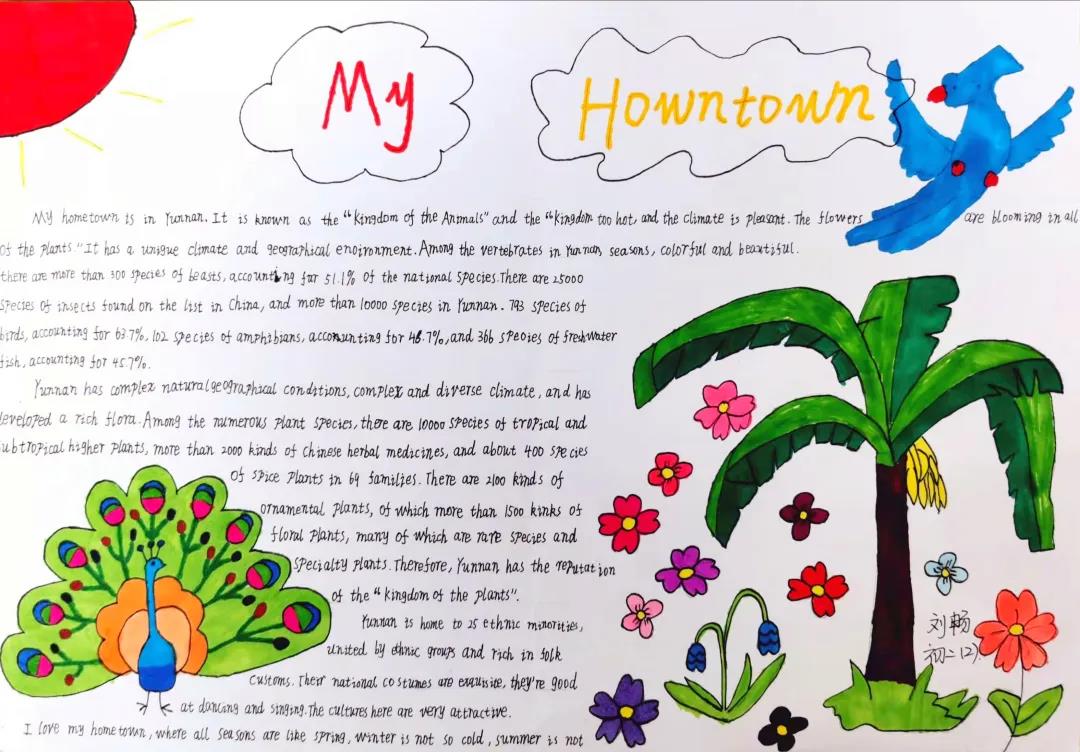 My Howntown
My hometown is in Yunnan. It is known as the "kingdom of the Animals" and the "kingdom too hot, and the climate is pleasant. The flowers are blooming in all
of the plants" It has a unique climate and geographical environment. Among the vertebrates in Yunnan seasons, colorful and beautiful.
there are more than 300 species of beasts, accounting for 51.1% of the national species. There are 25000
species of insects found on the list in China, and more than 10000 species in Yunnan. 793 species of
birds, accounting for 63.7%, 102 species of amphibians, accounting for 48.7%, and 366 species of freshwater
fish, accounting for 45.7%.
Yunnan has complex natural geographical conditions, complex and diverse climate, and has
developed a rich flora. Among the numerous plant species, there are 10000 species of tropical and
subtropical higher plants, more than 2000 kinds of Chinese herbal medicines, and about 400 species
of spice plants in 69 families. There are 2100 kinds of
ornamental plants, of which more than 1500 kinks of
floral plants, many of which are rare species and
specialty plants. Therefore, Yunnan has the reputation
of the "kingdom of the plants".
Yunnan is home to 25 ethnic minorities,
united by ethnic groups and rich in folk
customs. Their national costumes are exquisite, they're good
at dancing and singing. The cultures here are very attractive.
I love my hometown, where all seasons are like spring, winter is not so cold, summer is not
刘畅
初二(2).